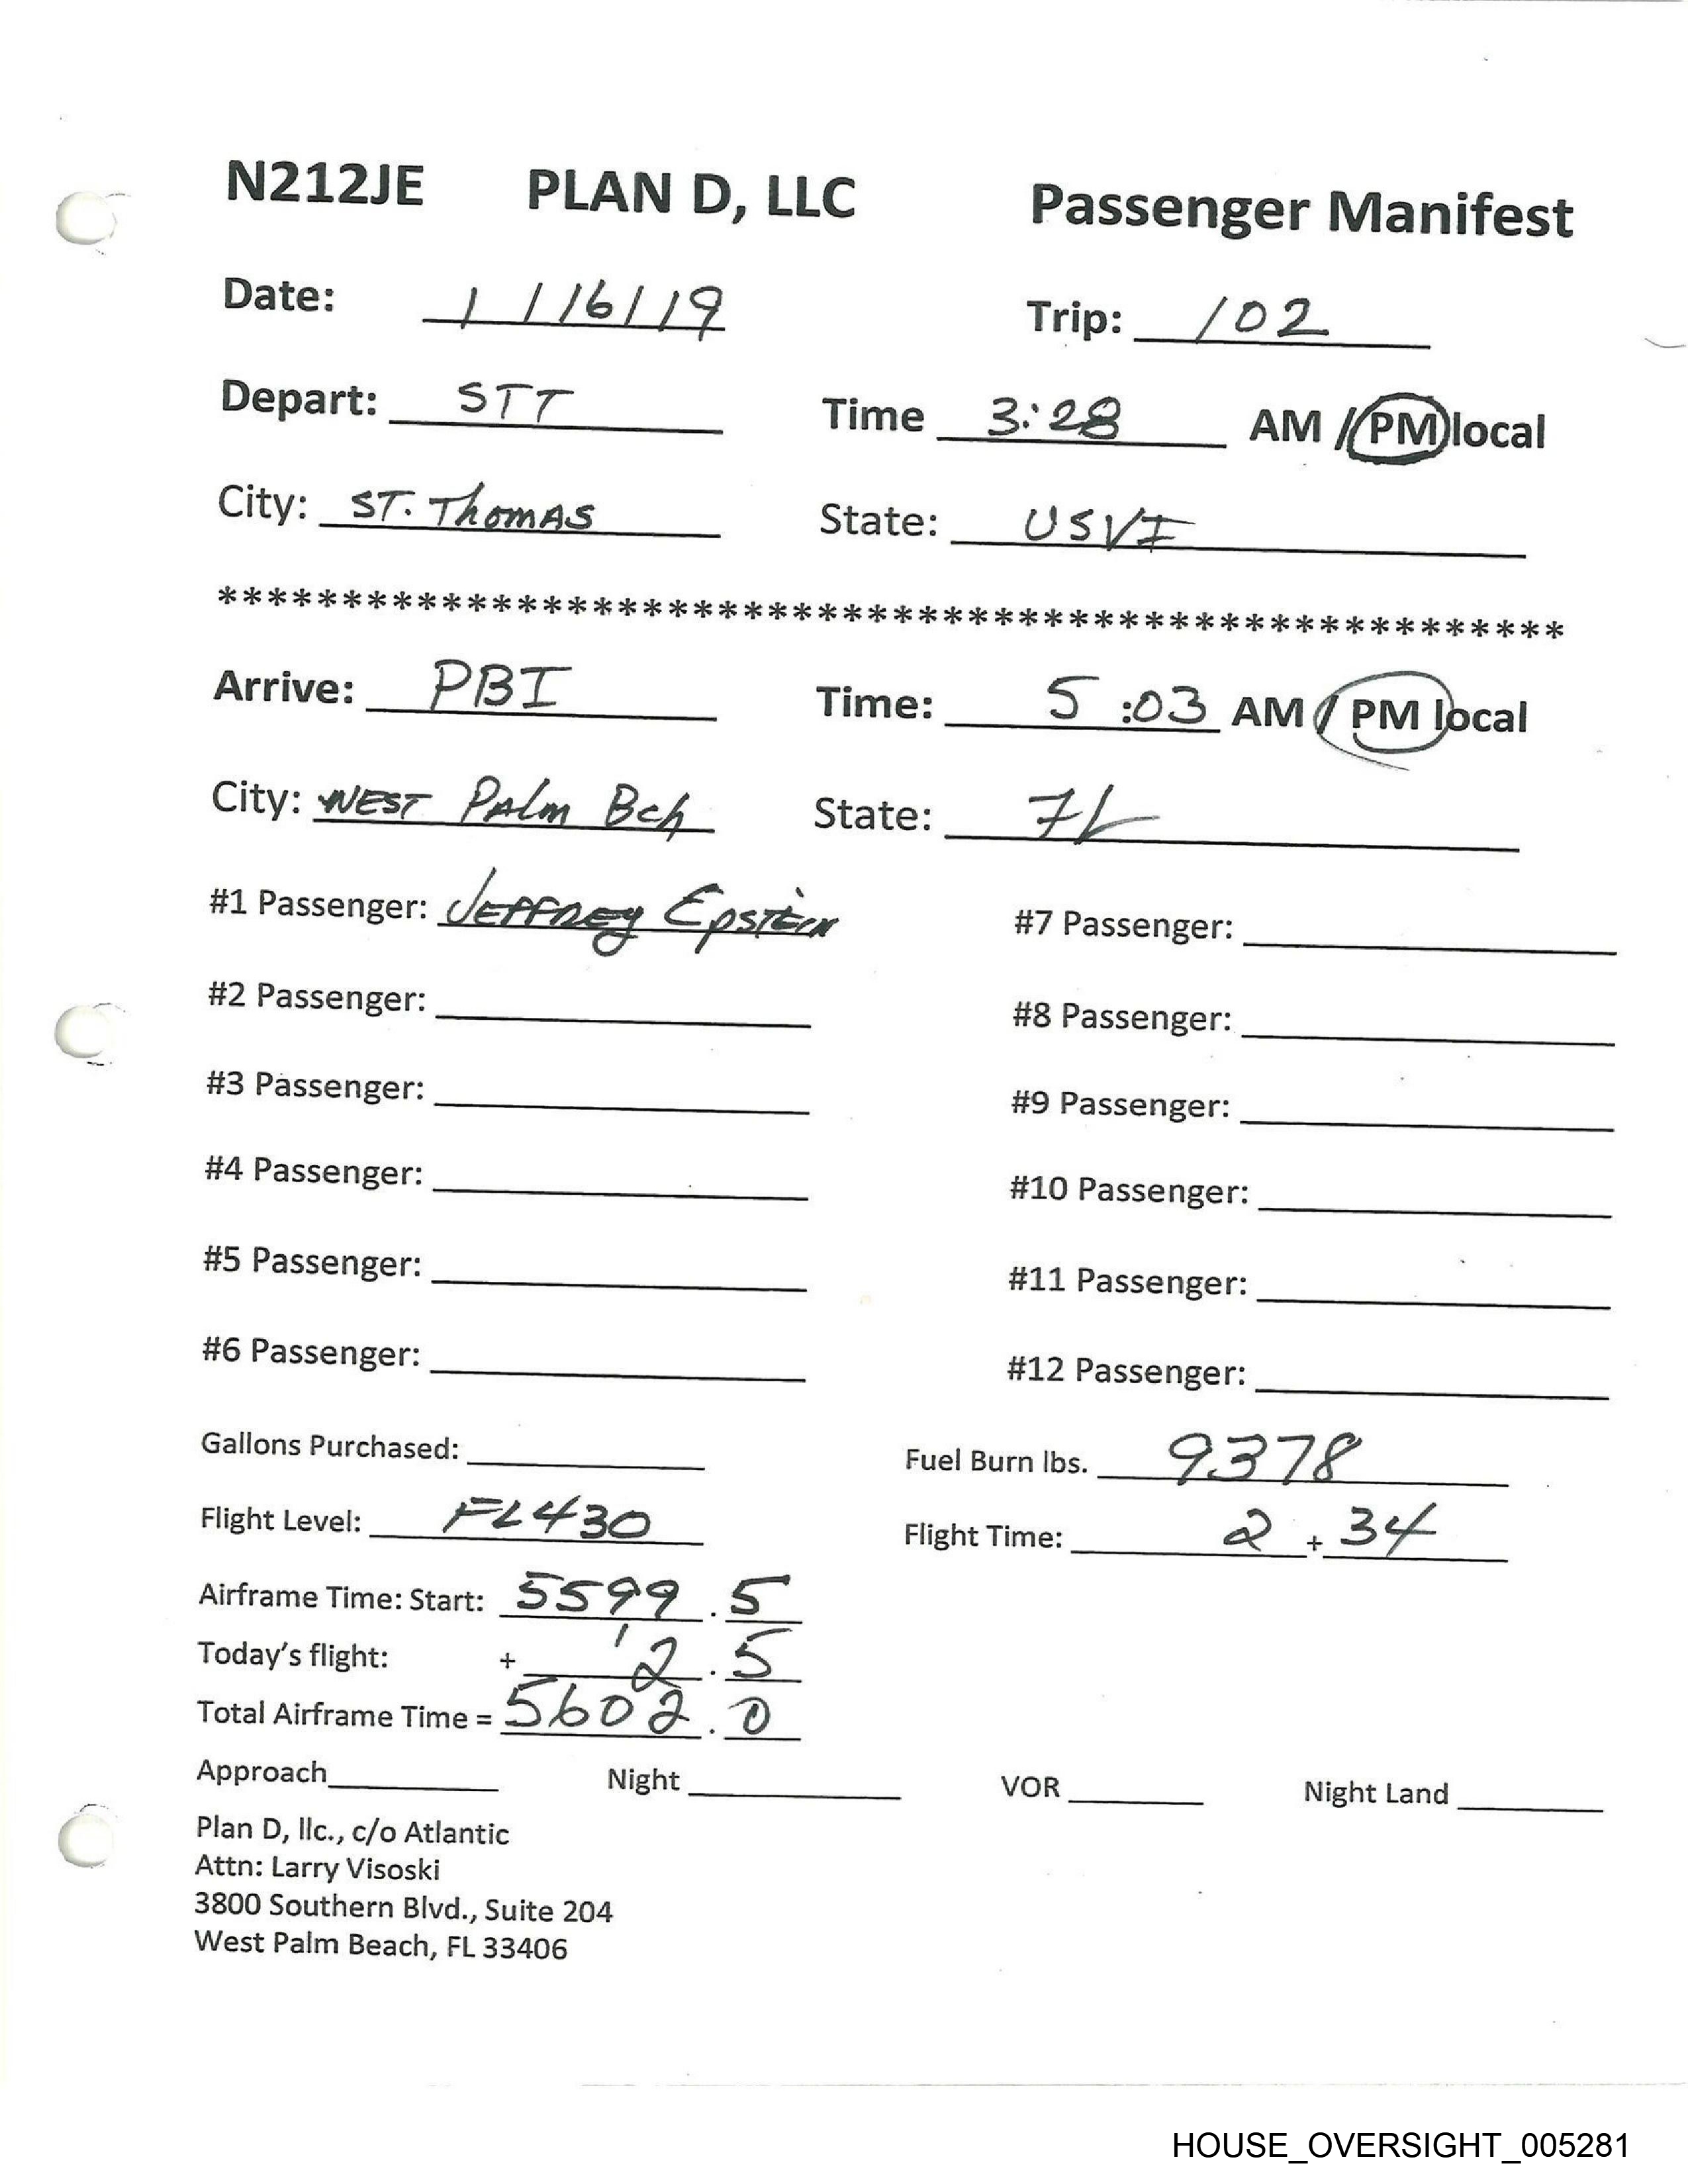 N212JE PLAN D, LLC Passenger Manifest
Date: 1 / 16 / 19 Trip: 102
Depart: STT Time 3:28 AM / PM local
City: ST. Thomas State: USVI
******************************************************
Arrive: PBI Time: 5 :03 AM / PM local
City: WEST Palm Bch State: FL
#1 Passenger: Jeffrey Epstein #7 Passenger:
#2 Passenger: #8 Passenger:
#3 Passenger: #9 Passenger:
#4 Passenger: #10 Passenger:
#5 Passenger: #11 Passenger:
#6 Passenger: #12 Passenger:
Gallons Purchased: Fuel Burn lbs. 9378
Flight Level: FL430 Flight Time: 2 + 34
Airframe Time: Start: 5599 . 5
Today's flight: + 2 . 5
Total Airframe Time = 5602 . 0
Approach Night VOR Night Land
Plan D, llc., c/o Atlantic
Attn: Larry Visoski
3800 Southern Blvd., Suite 204
West Palm Beach, FL 33406
HOUSE_OVERSIGHT_005281